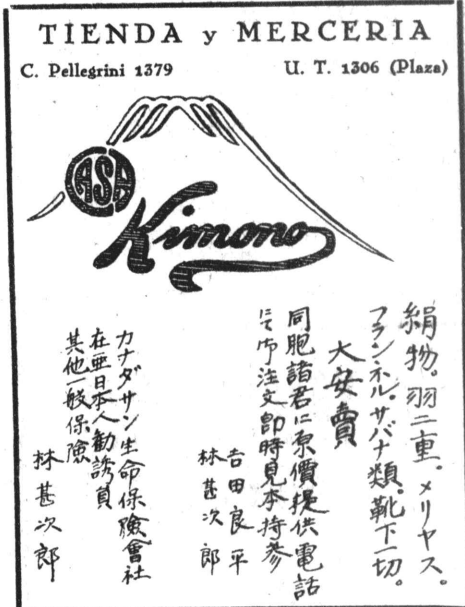 TIENDA y MERCERIA
C. Pellegrini 1379
U. T. 1306 (Plaza)
CASA
Kimono
絹物。羽二重。メリヤス。
フランネル。サバナ類。靴下一切。
大安賣
同胞諸君に原價提供電話
にて御注文卽時見本持參
吉田良平
林甚次郎
カナダサン生命保險會社
在亜日本人勸誘員
其他一般保險
林甚次郎